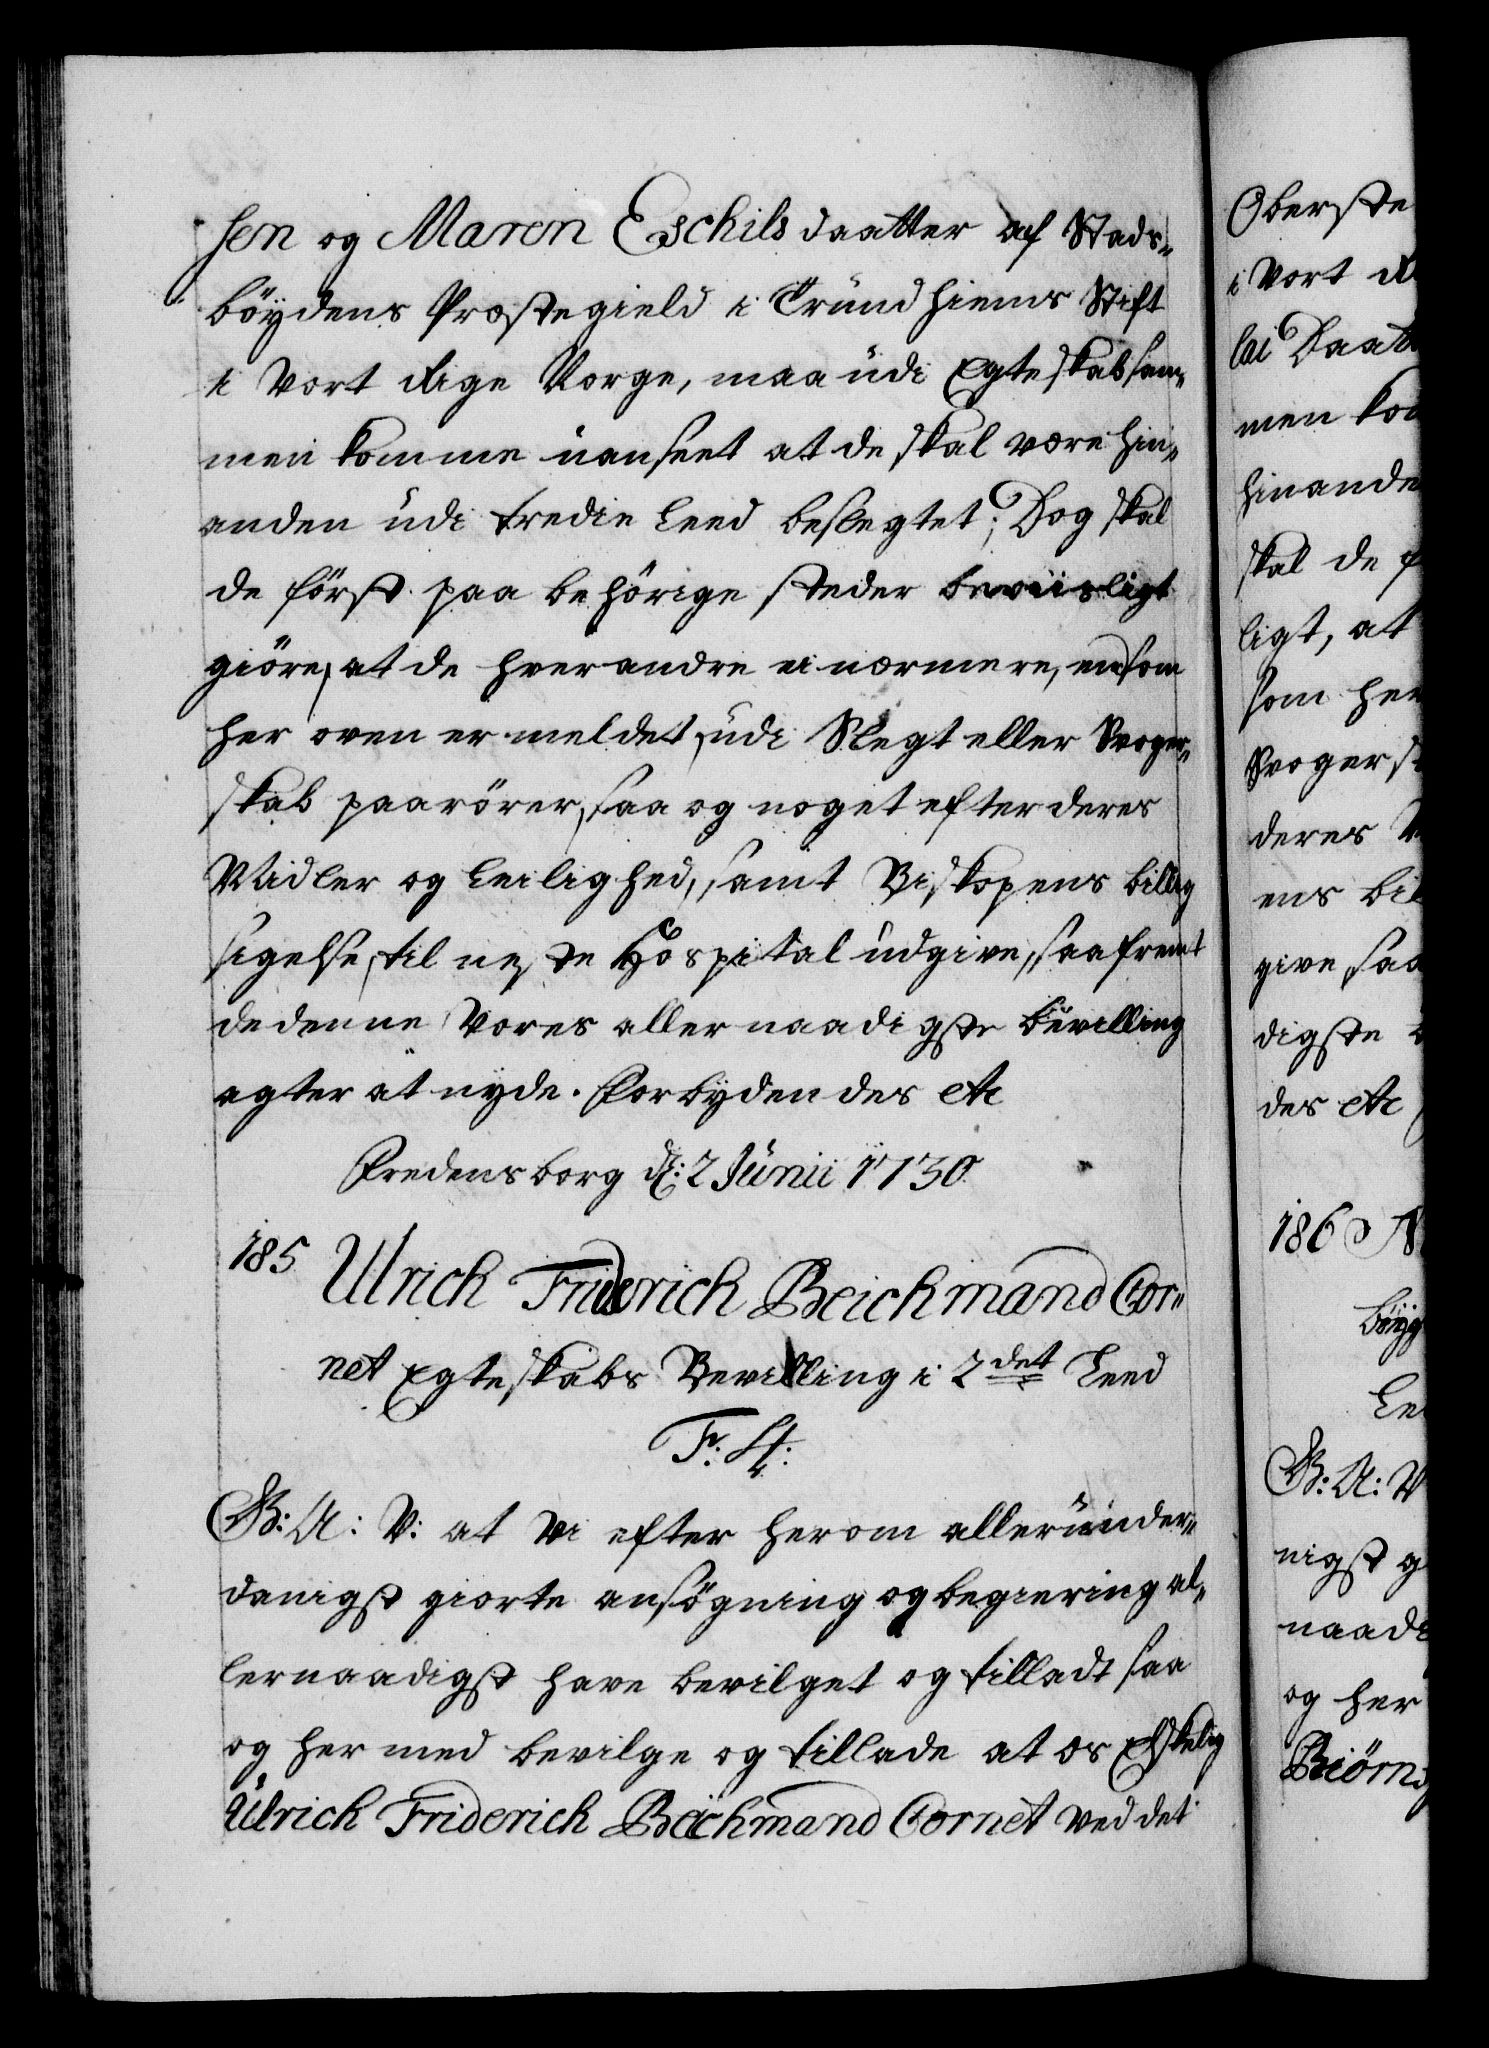 sen og Maren Eschils daatter af Stads-
böydens Præstegield i Trundhiems Stift
i Vort Rige Norge, maa udi Egteskab sam-
men komme uanseet at de skal være hin-
anden udi tredie Leed beslegtet; Dog skal
de först paa behörige steder beviisligt
giöre, at de hverandre ei nærmere, end som
her oven er meldet, udi Slegt eller Svoger-
skab paarörer, saa og noget efter deres
Midler og Leilighed, samt Biskopens billig
sigelse, til neste Hospital udgive, saafremt
de denne Vores allernaadigste bevilling
agter at nyde. Forbydendes etc
Fredensborg d: 2 Junii 1730
185 Ulrich Friderich Beichmand Cor-
net Egteskabs Bevilling i 2det Leed
F: 4:
G: A: V: at Vi efter herom allerunder-
danigst giorte ansögning og begiering al-
lernaadigst have bevilget og tilladt saa
og hermed bevilge og tillade at os Elskelig
Ulrich Friderich Beichmand Cornet ved det
Oberste
i Vort
lai Daatt
men kom
hinande
skal de f
ligt, at
som her
Svogersk
deres
ens bil
give, saa
digste
des etc
186
böyg
Lee
G: A: V
nigst g
naadi
og her
Biörn